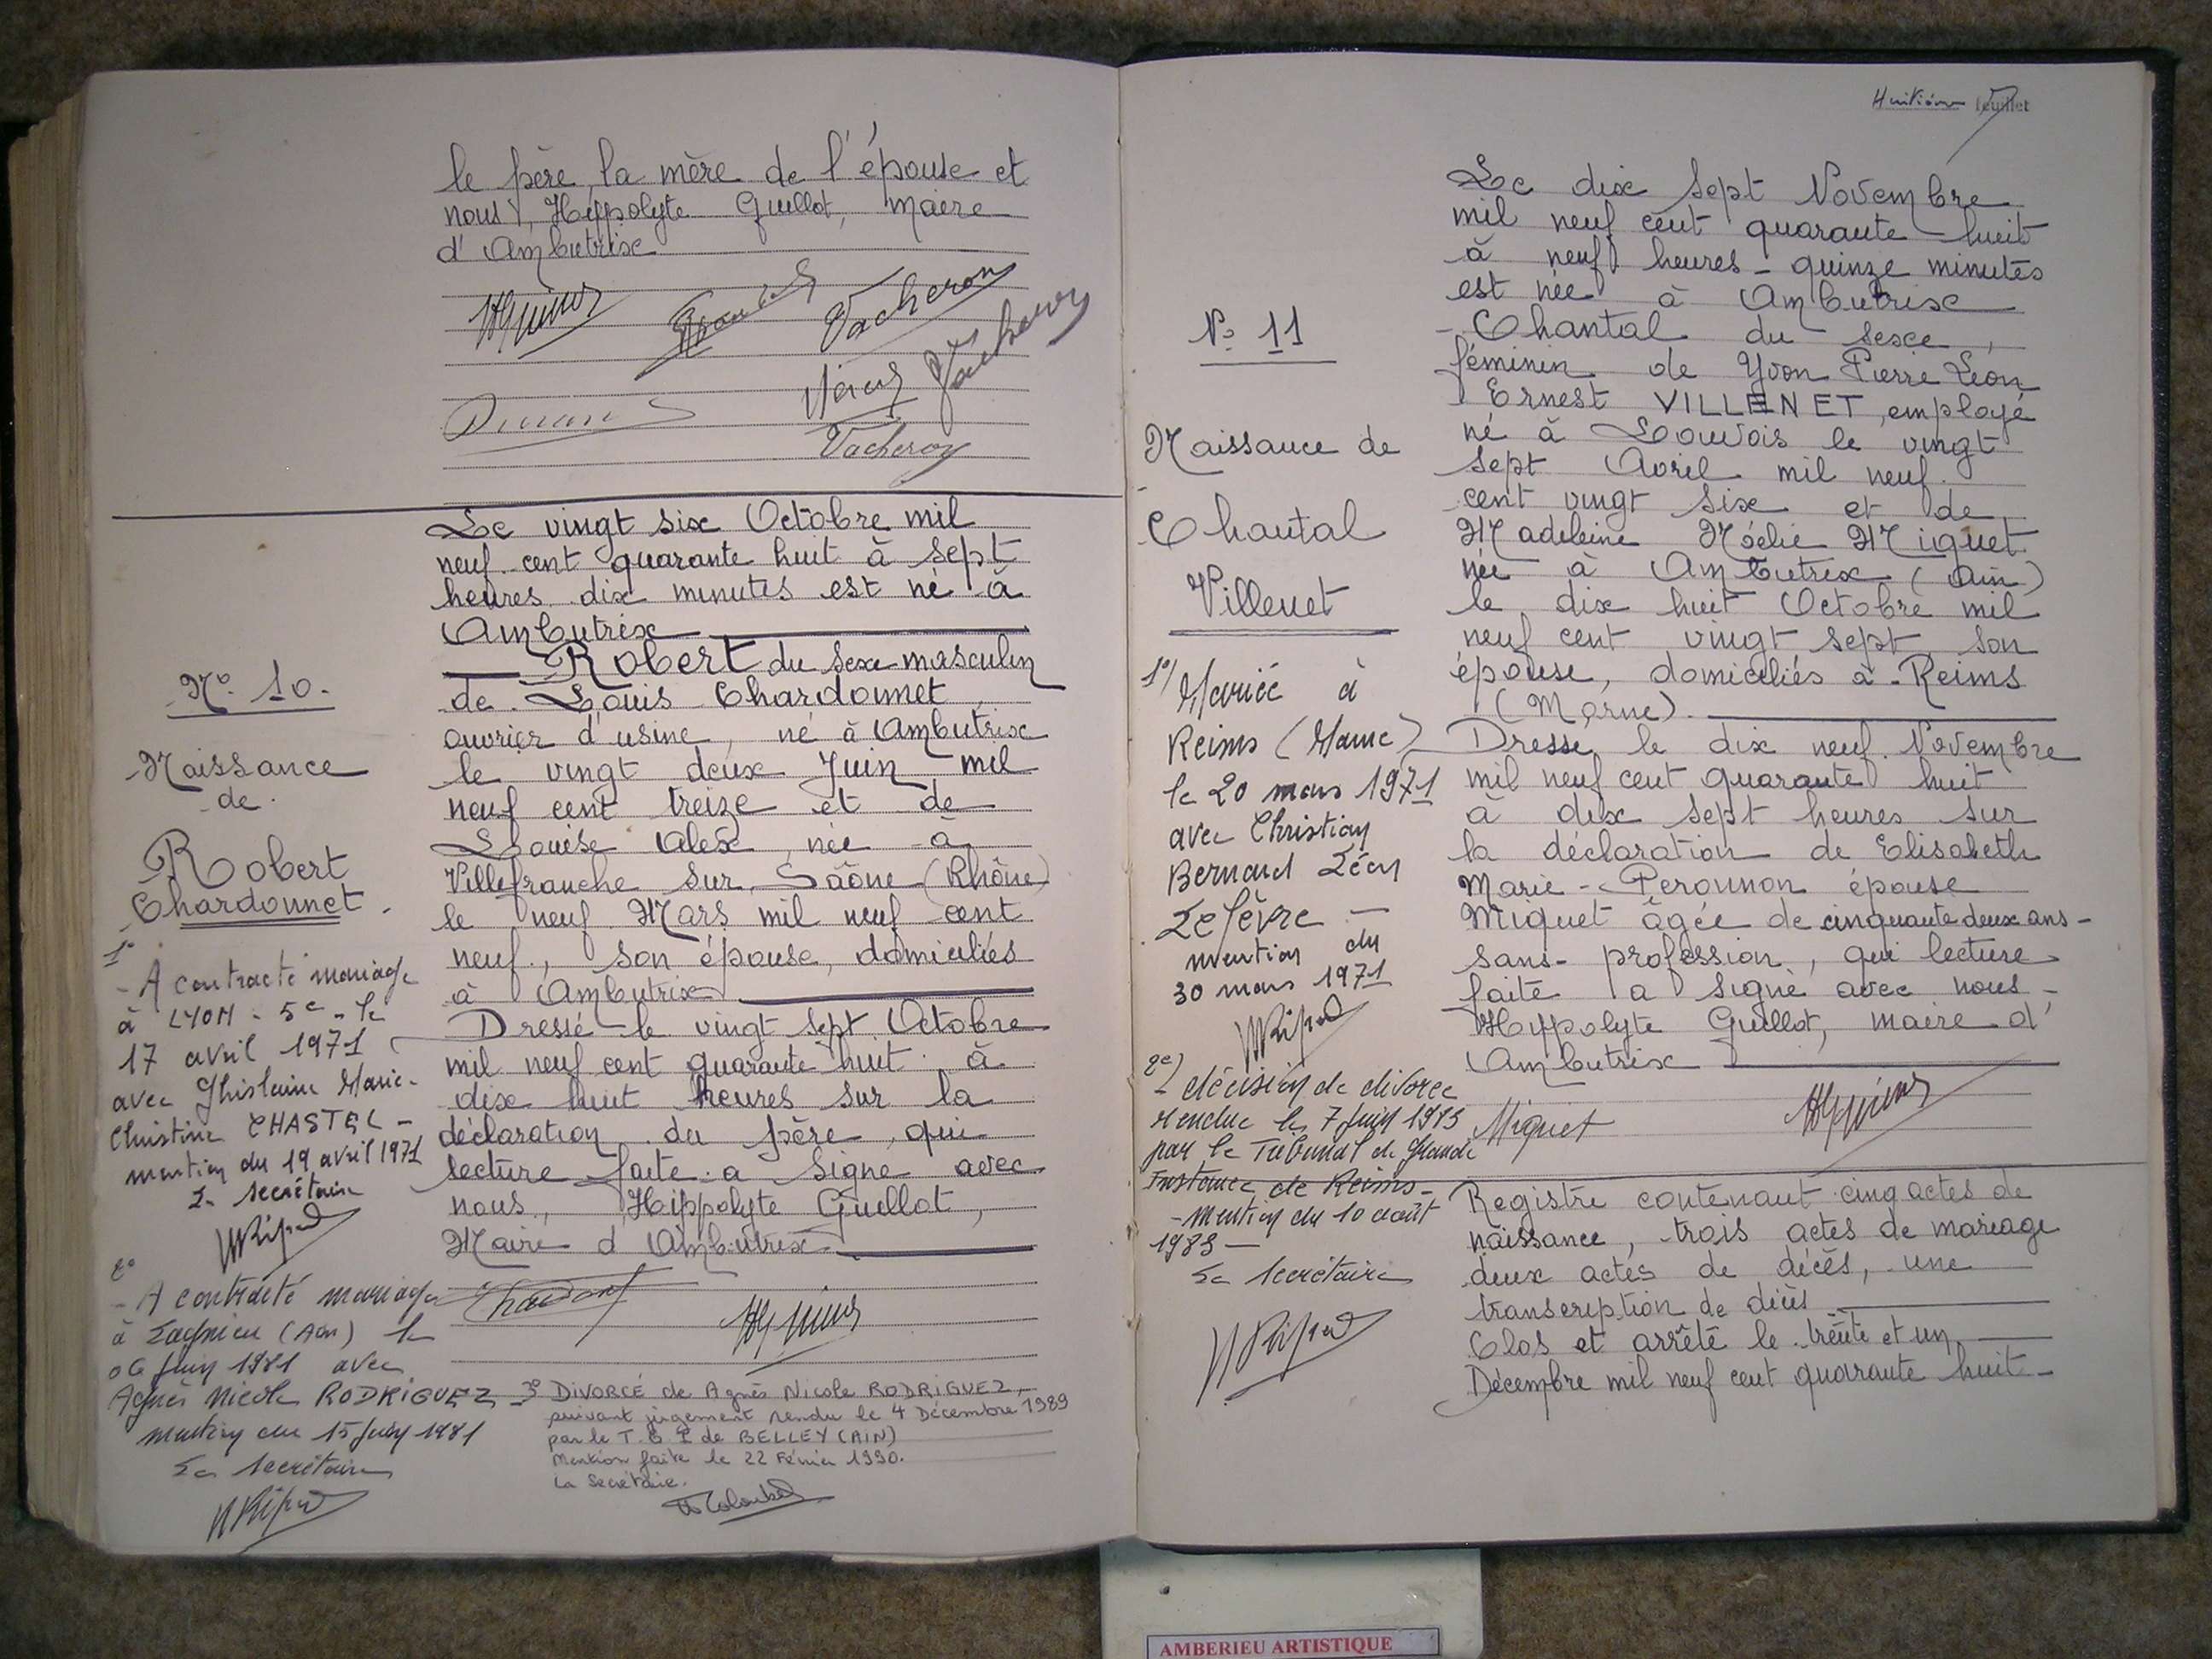 le père, la mère de l'épouse et
nous, Hippolyte Guillot, maire
d'Ambutrix
Vacheron
Vacheron
Vacheron
Le vingt six Octobre mil
neuf cent quarante huit à sept
heures dix minutes est né à
Ambutrix
Robert du sexe masculin
de Louis Chardonnet,
ouvrier d'usine, né à Ambutrix
le vingt deux Juin mil
neuf cent treize et de
Louise Alex, née à
Villefranche sur Saône (Rhône)
le neuf Mars mil neuf cent
neuf, son épouse, domiciliés
à Ambutrix
Dressé le vingt sept Octobre
mil neuf cent quarante huit à
dix huit heures sur la
déclaration du père, qui
lecture faite a signé avec
nous, Hippolyte Guillot,
Maire d'Ambutrix.
No. 10.
Naissance
de.
Robert
Chardonnet.
1°
- A contracté mariage
à LYON - 5e - le
17 avril 1971
avec Ghislaine Marie-
Christine CHASTEL -
mention du 19 avril 1971
Le secrétaire
2°
- A contracté mariage
à Lagnieu (Ain) le
06 Juin 1981 avec
Agnès Nicole RODRIGUEZ -
mention du 15 Juin 1981
Le secrétaire
3° DIVORCÉ de Agnès Nicole RODRIGUEZ,
suivant jugement rendu le 4 Décembre 1989
par le T. G I de BELLEY (AIN)
Mention faite le 22 Février 1990.
La Secrétaire.
Huitième feuillet
N° 11
Naissance de
Chantal
Villenet
1°/
Mariée à
Reims (Marne)
le 20 mars 1971
avec Christian
Bernard Léon
Lefèvre -
mention du
30 mars 1971
2e)
- décision de divorce
rendue le 7 Juin 1983
par le Tribunal de Grande
Instance de Reims -
- mention du 10 août
1983 -
Le secrétaire
Le dix sept Novembre
mil neuf cent quarante huit
à neuf heures - quinze minutes
est née à Ambutrix
- Chantal du sexe,
féminin de Yvon Pierre Léon
Ernest VILLENET, employé
né à Louvois le vingt
sept Avril mil neuf.
cent vingt six et de
Madeleine Noélie Miguet
née à Ambutrix (Ain)
le dix huit Octobre mil
neuf cent vingt sept, son
épouse, domiciliés à Reims
(Marne).
Dressé le dix neuf Novembre
mil neuf cent quarante huit
à dix sept heures sur
la déclaration de Elisabeth
Marie - Peronnon épouse
Miguet âgée de cinquante deux ans -
sans - profession, qui lecture
faite a signé avec nous -
Hyppolyte Guillot, maire d'
Ambutrix
Miguet
Registre contenant cinq actes de
naissance, trois actes de mariage
deux actes de décès, une
transcription de décès
Clos et arrêté le trente et un
Décembre mil neuf cent quarante huit -
AMBERIEU ARTISTIQUE